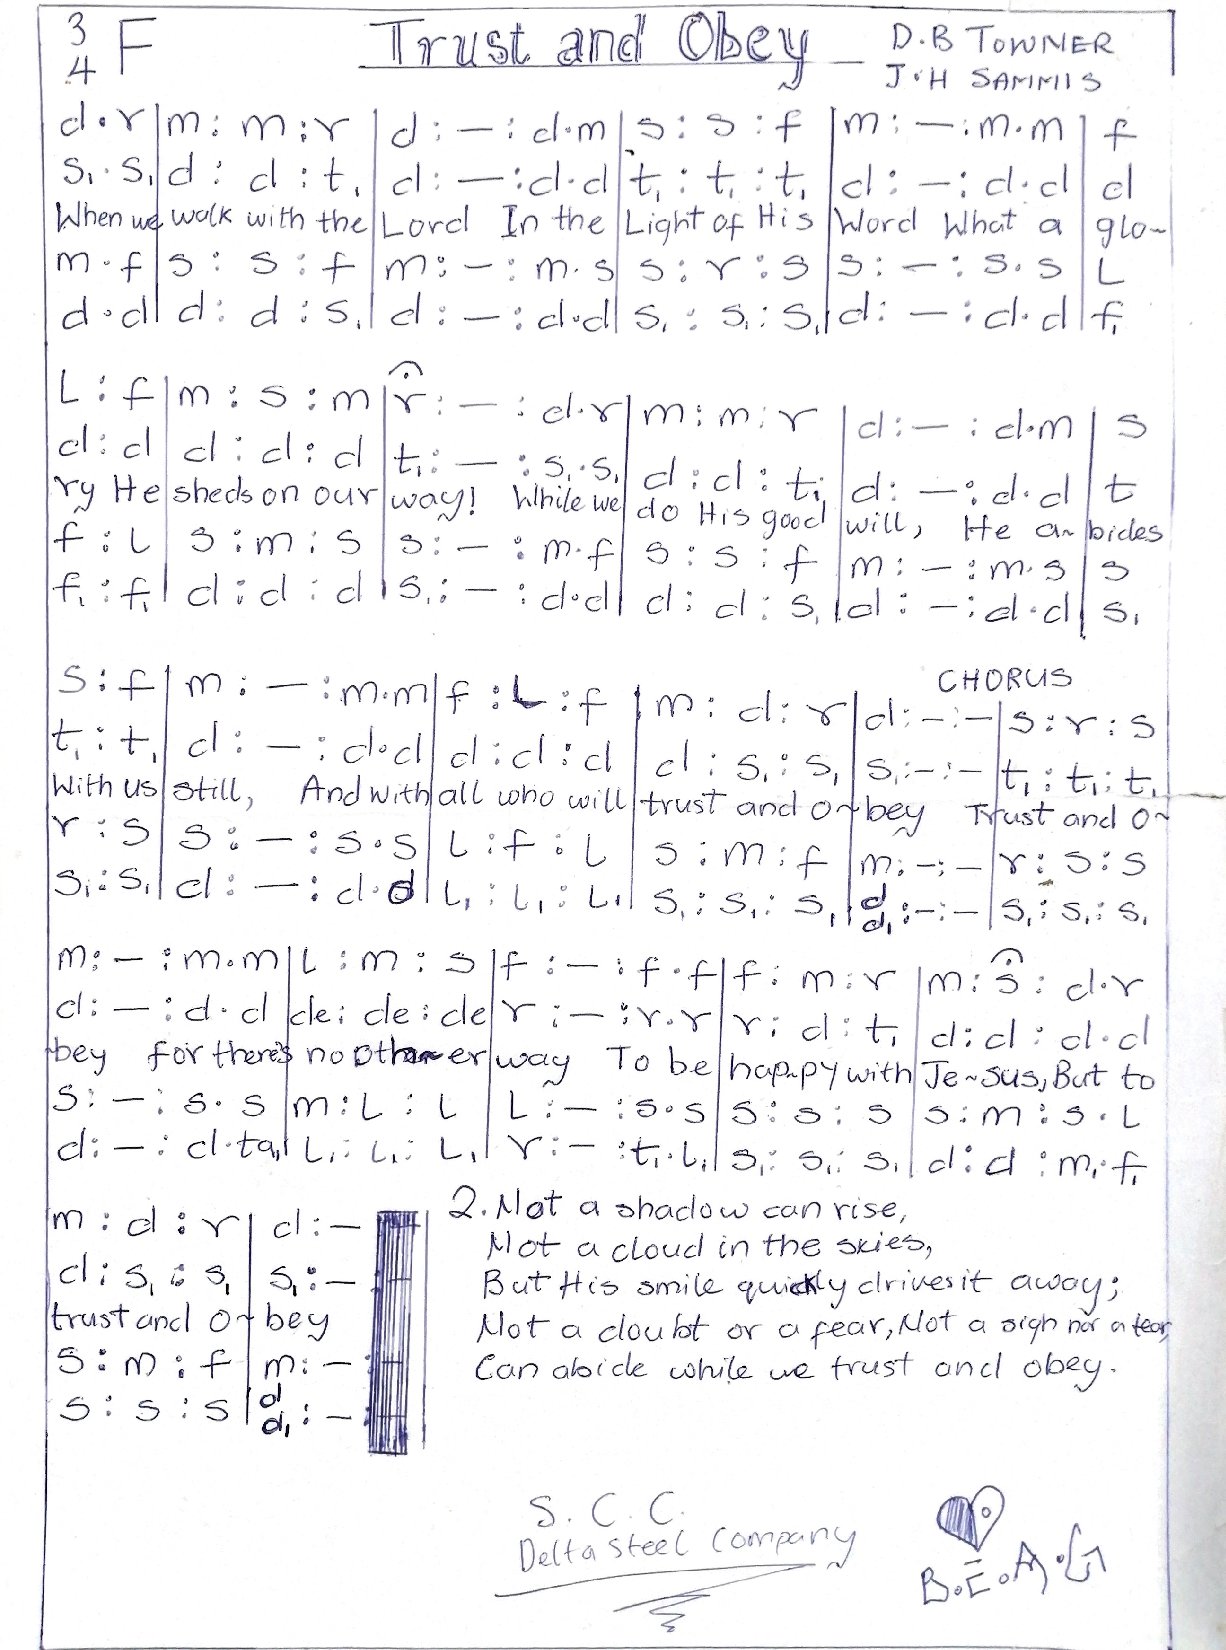 3
4 F Trust and Obey D.B TOWNER
J.H SAMMIS
d.r|m: m:r|d:—:d.m|s:s:f|m:—:m.m|f
s₁.s₁|d: d:t₁|d:—:d.d|t₁:t₁:t₁|d:—:d.d|d
When we walk with the Lord In the Light of His Word What a glo~
m.f|s: s:f|m:—:m.s|s:r:s|s:—:s.s|L
d.d|d: d:s₁|d:—:d.d|s₁:s₁:s₁|d:—:d.d|f₁
L:f|m:s:m|r:—:d.r|m:m:r|d:—:d.m|s
d:d|d:d:d|t₁:—:s₁.s₁|d:d:t₁|d:—:d.d|t
ry He sheds on our way! While we do His good will, He a~bides
f:L|s:m:s|s:—:m.f|s:s:f|m:—:m.s|s
f₁:f₁|d:d:d|s₁:—:d.d|d:d:s₁|d:—:d.d|s₁
CHORUS
s:f|m:—:m.m|f:L:f|m:d:r|d:—:—|s:r:s
t₁:t₁|d:—:d.d|d:d:d|d:s₁:s₁|s₁:—:—|t₁:t₁:t₁
With us still, And with all who will trust and o~bey Trust and o~
r:s|s:—:s.s|L:f:L|s:m:f|m:—:—|r:s:s
s₁:s₁|d:—:d.d|L₁:L₁:L₁|s₁:s₁:s₁|d d₁:—:—|s₁:s₁:s₁
m:—:m.m|L:m:s|f:—:f.f|f:m:r|m:s:d.r
d:—:d.d|de:de:de|r:—:r.r|r:d:t₁|d:d:d.d
~bey for there's no other~er way To be hap~py with Je~sus, But to
s:—:s.s|m:L:L|L:—:s.s|s:s:s|s:m:s.L
d:—:d.ta₁|L₁:L₁:L₁|r:—:t₁.L₁|s₁:s₁:s₁|d:d:m₁.f₁
m:d:r|d:—
d:s₁:s₁|s₁:—
trust and o~bey
s:m:f|m:—:
s:s:s|d d₁:—:
2. Not a shadow can rise,
Not a cloud in the skies,
But His smile quickly drives it away;
Not a doubt or a fear, Not a sigh nor a tear,
Can abide while we trust and obey.
S.C.C.
Delta Steel Company
B.E.A.G